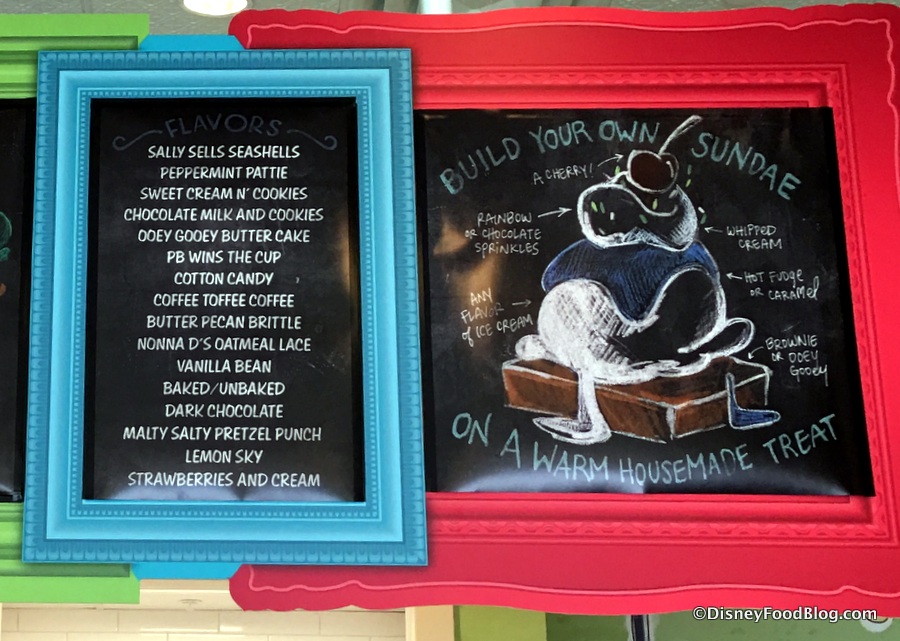 FLAVORS
SALLY SELLS SEASHELLS
PEPPERMINT PATTIE
SWEET CREAM N' COOKIES
CHOCOLATE MILK AND COOKIES
OOEY GOOEY BUTTER CAKE
PB WINS THE CUP
COTTON CANDY
COFFEE TOFFEE COFFEE
BUTTER PECAN BRITTLE
NONNA D'S OATMEAL LACE
VANILLA BEAN
BAKED/UNBAKED
DARK CHOCOLATE
MALTY SALTY PRETZEL PUNCH
LEMON SKY
STRAWBERRIES AND CREAM
BUILD YOUR OWN SUNDAE
A CHERRY!
RAINBOW
OR CHOCOLATE
SPRINKLES
WHIPPED
CREAM
HOT FUDGE
OR CARAMEL
ANY
FLAVOR
OF ICE CREAM
BROWNIE
OR OOEY
GOOEY
ON A WARM HOUSEMADE TREAT
©DisneyFoodBlog.com